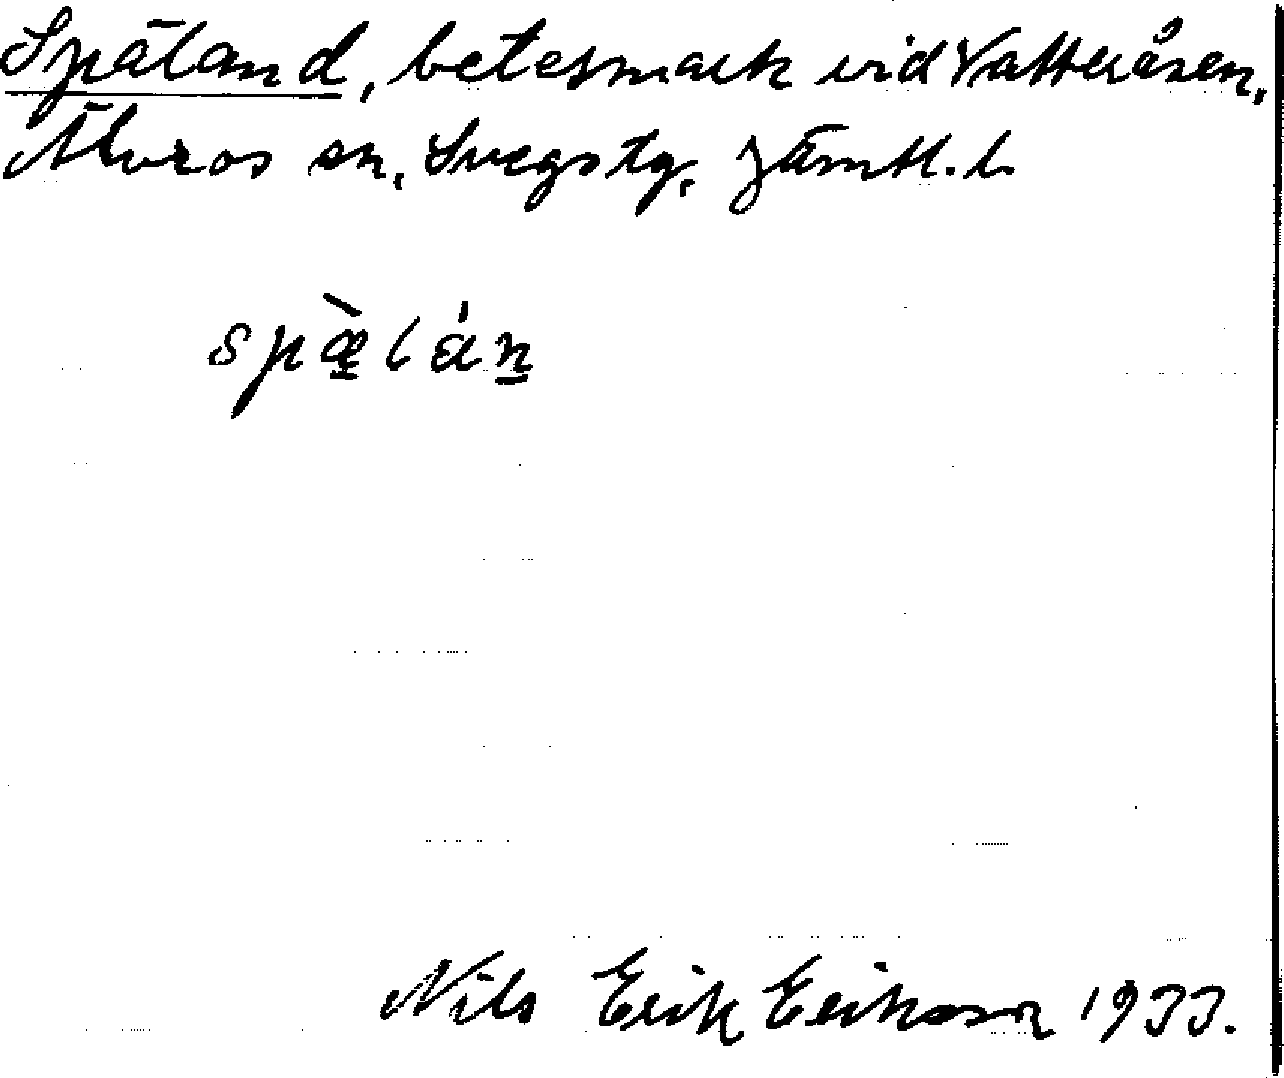 Späland, betesmark vid Vatteråsen,
Älvros sn, Svegs tg, Jämtl. l.
spæ̲̀lán̲
Nils Erik Erikson 1933.